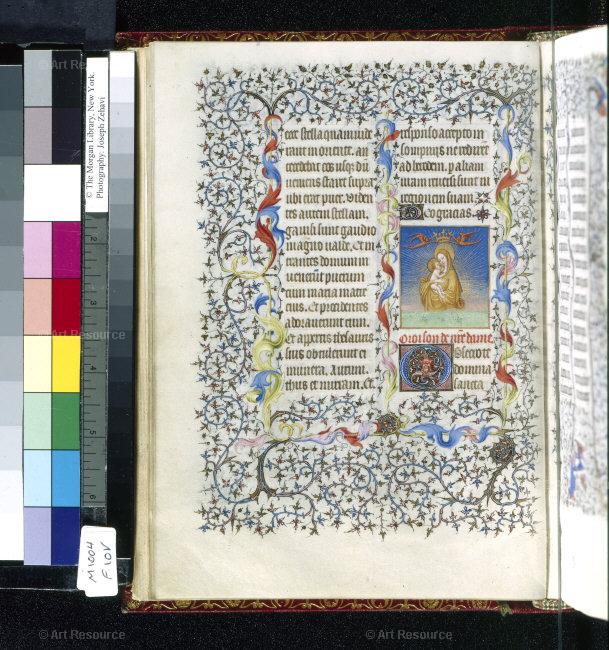 © Art Resource
© The Morgan Library, New York.
Photography: Joseph Zehavi
2
3
4
5
6
M1004
F 10V
ece stella quam vide
rant in oriente. an
tecedebat eos usqz du
veniens staret supra
ubi erat puer. viden
tes autem stellam
gavisi sunt gaudio
magno valde. Et in
trantes domum in
venerut puerum
cum maria matre
eius. Et procidentes
adoraverunt eum.
Et apertis thesauris
suis obtulerunt ei
munera. Aurum.
thus et mirram. Et
responso accepto in
sompnis ne redirent
ad herodem. p aliam
viam reversi sunt in
regionem suam.
Deo gracias.
Oroison de nre dame
O
domina
sancta
© Art Resource
© Art Resource
© Art Resource